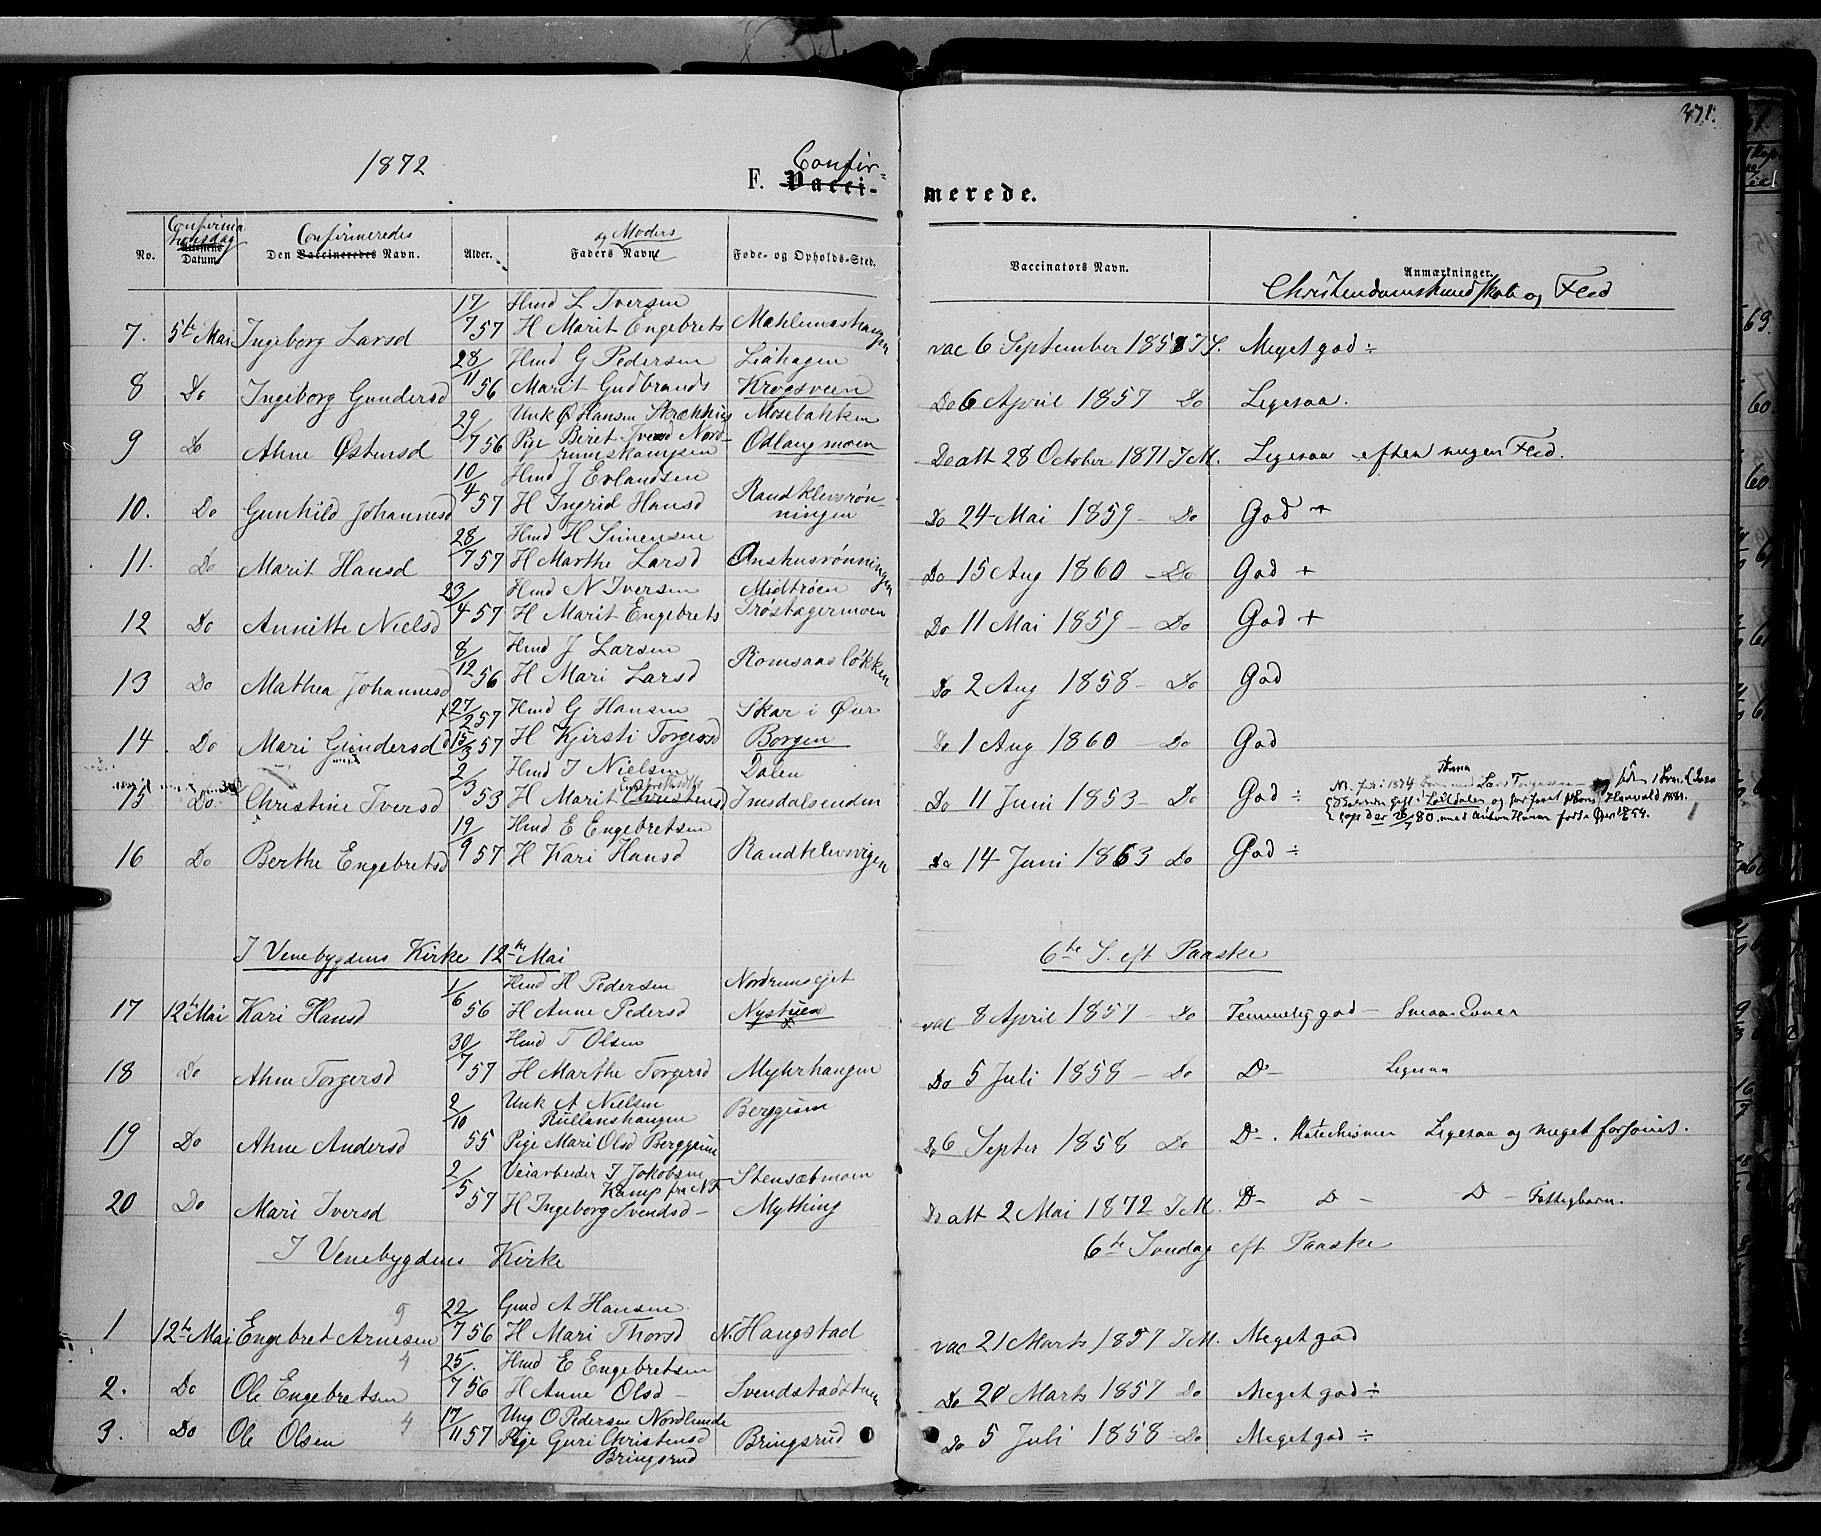 271.
1872
F. Vacci- Confir=
merede.
No. Confirmationsdag Attestens Datum. Den Confirmeredes Vaccineredes Navn. Alder. Faders og Moders Navne Føde- og Opholds-Sted. Vaccinators Navn. Anmærkninger.
Christendomskundskab og Flid
17/ Hmd L Iversen
7. 5te Mai Ingeborg Larsd 7 57 H Marit Engebrets vac 6 September 1858 Meget god ÷
28/ Hmd G Pedersen Liahagen
8 Do Ingeborg Gundersd 11 56 Marit Gudbrands Krogsveen Do 6 April 1857 Do Ligesaa.
29/ Unk Ø Hansen Mosebakken
9 Do Ahne Østensd 7 56 Pige Beret Odlaugmoen Do att 28 October 1871 I M. Ligesaa Flid.
10/ Hmd J Erlandsen
10. Do Gunhild Johannesd 4 57 H Ingrid Hansd Randklevsrøn-
ningen Do 24 Mai 1859 - Do God +
28/ Hmd H Simensen
11. Do Marit Hansd 7 57 H Marthe Larsd Onshusrønningen Do 15 Aug 1860 - Do God +
23/ Hmd N Iversen Midtrøen
12 Do Annette Nielsd 4 57 H Marit Engebrets Trøstagermoen Do 11 Mai 1859 - Do God +
8/ Hmd J Larsen
13 Do Mathea Johannesd 12 56 H Mari Larsd Romsaasløkken Do 2 Aug 1858 - Do God
27/2 57 Hmd G Hansen Skar i Øier
14 Do Mari Gundersd 15/3 57 H Kjersti Torgersd Borgen Do 1 Aug 1860 - Do God
2/ Hmd I Nielsen Dalen
15 Do Christine Iversd 3 53 H Marit Christensd Imsdalsenden Do 11 Juni 1853 - Do God ÷
19/ Hmd E Engebretsen
16 Do Berthe Engebretsd 9 57 H Kari Hansd Randklevsvigen Do 14 Juni 1863 Do God ÷
I Venebygdens Kirke 12te Mai 6te S. eft Paaske
1/ Hmd H Pedersen Nordrumsejet
17 12te Mai Kari Hansd 6 56 H Anne Pedersd Nystuen vac 8 April 1857 - Do Temmelig god - Smaa Evner
30/ Hmd T Olsen
18 Do Ahne Torgersd 7 57 H Marthe Torgersd Myhrhaugen Do 5 Juli 1858 - Do D- Ligesaa
2/ Unk A Nielsen Berggrum
10 Rullanshaugen
19 Do Ahne Andersd 55 Pige Mari Olsd Do 6 Septer 1858 Do D-. Katechismen Ligesaa og meget forsømt.
2/ Veiarbeider I Jokobsen Stensætmoen
5 Kamp fra N F
20 Do Mari Iversd 57 H Ingeborg Svendsd - Mything Do att 2 Mai 1872 I M. D- D- D- Fattigbarn.
I Venebygdens Kirke 6te Søndag eft Paaske
22/ Gmd A Hansen
1 12te Mai Engebret Arnesen 7 56 H Mari Thorsd N. Haugstad vac 21 Marts 1857 I M. Meget god
25/ Hmd E Engebretsen
2. Do Ole Engebretsen 7 56 H Anne Olsd - Svendstadstuen Do 20 Marts 1857 Do Meget god ÷
17/ Ung O Pedersen Nordlunde
3. Do Ole Olsen 11 57 Pige Guri Christensd Bringsrud Do 5 Juli 1858 - Do Meget god ÷
Bringsrud